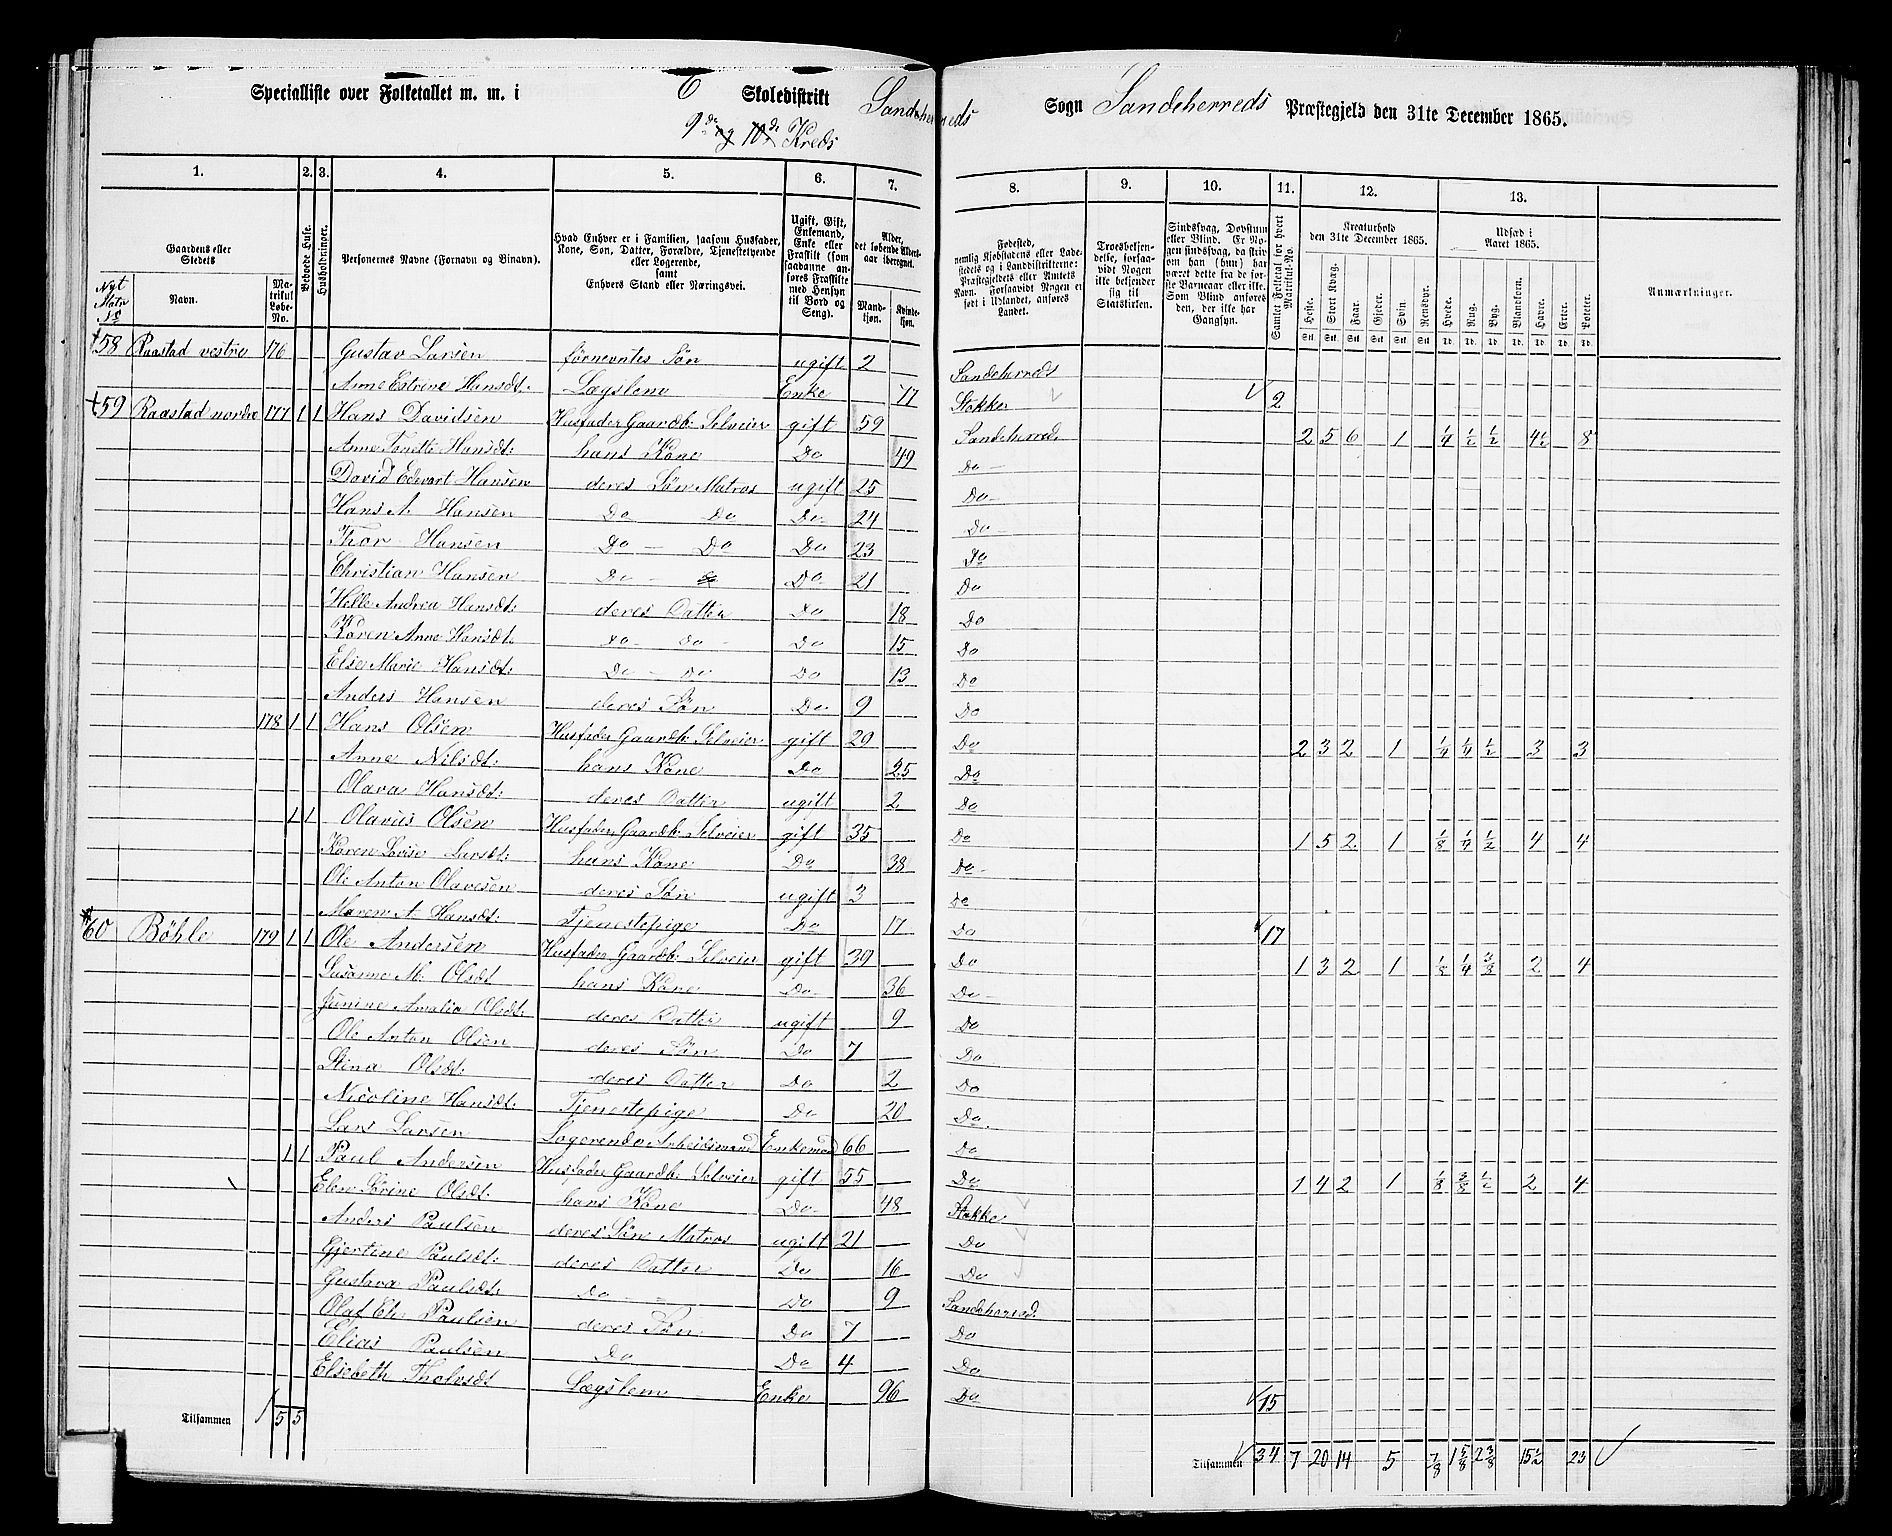 Specialliste over Folketallet m. m. i 6 Skoledistrikt Sandeherreds Sogn Sandeherreds Præstegjeld den 31te December 1865.
9de og 10de Kreds
1. 2. 3. 4. 5. 6. 7. 8. 9. 10. 11. 12. 13.
Gaardens eller Stedets
Nyt Matr No
Navn.
Matrikul Løbe-No.
Beboede Huse.
Husholdninger.
Personernes Navne (Fornavn og Binavn).
Hvad Enhver er i Familien, saasom Husfader, Kone, Søn, Datter, Forældre, Tjenestetyende eller Logerende, samt Enhvers Stand eller Næringsvei.
Ugift, Gift, Enkemand, Enke eller Fraskilt (som saadanne anføres Fraskilte med Hensyn til Bord og Seng).
Alder, det løbende Alders-aar iberegnet.
Mandkjøn. Kvindekjøn.
Fødested, nemlig Kjøbstadens eller Ladestedets og i Landdistrikterne: Præstegjeldets eller Amtets Navn. Forsaavidt Nogen er født i Udlandet, anføres Landet.
Troesbekjendelse, forsaavidt Nogen ikke bekjender sig til Statskirken.
Sindssvag, Døvstum eller Blind. Er Nogen sindssvag, da skriv om han (hun) har været dette fra de første Barneaar eller ikke. Som Blind anføres den, der ikke har Gangsyn.
Samlet Folketal for hvert Matrikul-No.
Kreaturhold den 31te December 1865.
Heste. Stort Kvæg. Faar. Gjeder. Svin. Rensdyr.
Udsæd i Aaret 1865.
Hvede. Rug. Byg. Blankorn. Havre. Erter. Poteter.
Anmærkninger.
58 Raastad vestre 176 Gustav Larsen førnevntes Søn ugift 2 Sandeherreds
Anne Estrine Hansdt: Lægslem Enke 77 Stokke 2
59 Raastad nordre 177 1 1 Hans Davidsen Husfader Gaardb: Selveier gift 59 Sandeherred 2 5 6 1 1/4 1/2 1/2 4 1/2 8
Anne Tonette Hansdt: hans Kone Do 49 Do
David Edvart Hansen deres Søn Matros ugift 25 Do
Hans A. Hansen Do Do Do 24 Do
Thor Hansen Do Do Do 23 Do
Christian Hansen Do do Do 21 Do
Helle Andrea Hansdt: deres Datter Do 18 Do
Karen Anne Hansdt. Do Do Do 15 Do
Else Marie Hansdt: Do Do Do 13 Do
Anders Hansen deres Søn Do 9 Do
178 1 1 Hans Olsen Husfader Gaardb: Selveier gift 29 Do 2 3 2 1 1/4 1/4 1/2 3 3
Anne Nilsdt: hans Kone Do 25 Do
Olava Hansdt: deres Datter ugift 2 Do
1 1 Olavus Olsen Husfader Gaardb: Selveier gift 35 Do 1 5 2 1 1/8 1/4 1/2 4 4
Karen Lovise Larsdt: hans Kone Do 38 Do
Ole Anton Olavesen deres Søn ugift 3 Do
Maren A. Hansdt: Tjenestepige Do 17 Do 17
60 Bøhle 179 1 1 Ole Andersen Husfader Gaardb: Selveier gift 39 Do 1 3 2 1 1/8 1/4 3/8 2 4
Susanne M. Olsdt hans Kone Do 36 Do
Junine Amalia Olsdt: deres Datter ugift 9 Do
Ole Anton Olsen deres Søn Do 7 Do
Stina Olsdt: deres Datter Do 2 Do
Nicoline Hansdt: Tjenestepige Do 20 Do
Lars Larsen Logerende Arbeidsmand Enkemand 66 Do
1 1 Paul Andersen Husfader Gaardb: Selveier gift 55 Do 1 4 2 1 1/8 3/8 1/2 2 4
Elen Sørine Olsdt: hans Kone Do 48 Stokke
Anders Paulsen deres Søn Matros ugift 21 Do
Gjertine Paulsdt: deres Datter Do 16 Do
Gustava Paulsdt: Do Do 9 Sandeherred
Olaf Ed: Paulsen deres Søn Do 7 Do
Elias Paulsen Do Do 4 Do
Elsebeth Tholvsdt Lægslem Enke 96 Do 15
Tilsammen 5 5
Tilsammen 34 7 20 14 5 7/8 1 5/8 2 3/8 15 1/2 23